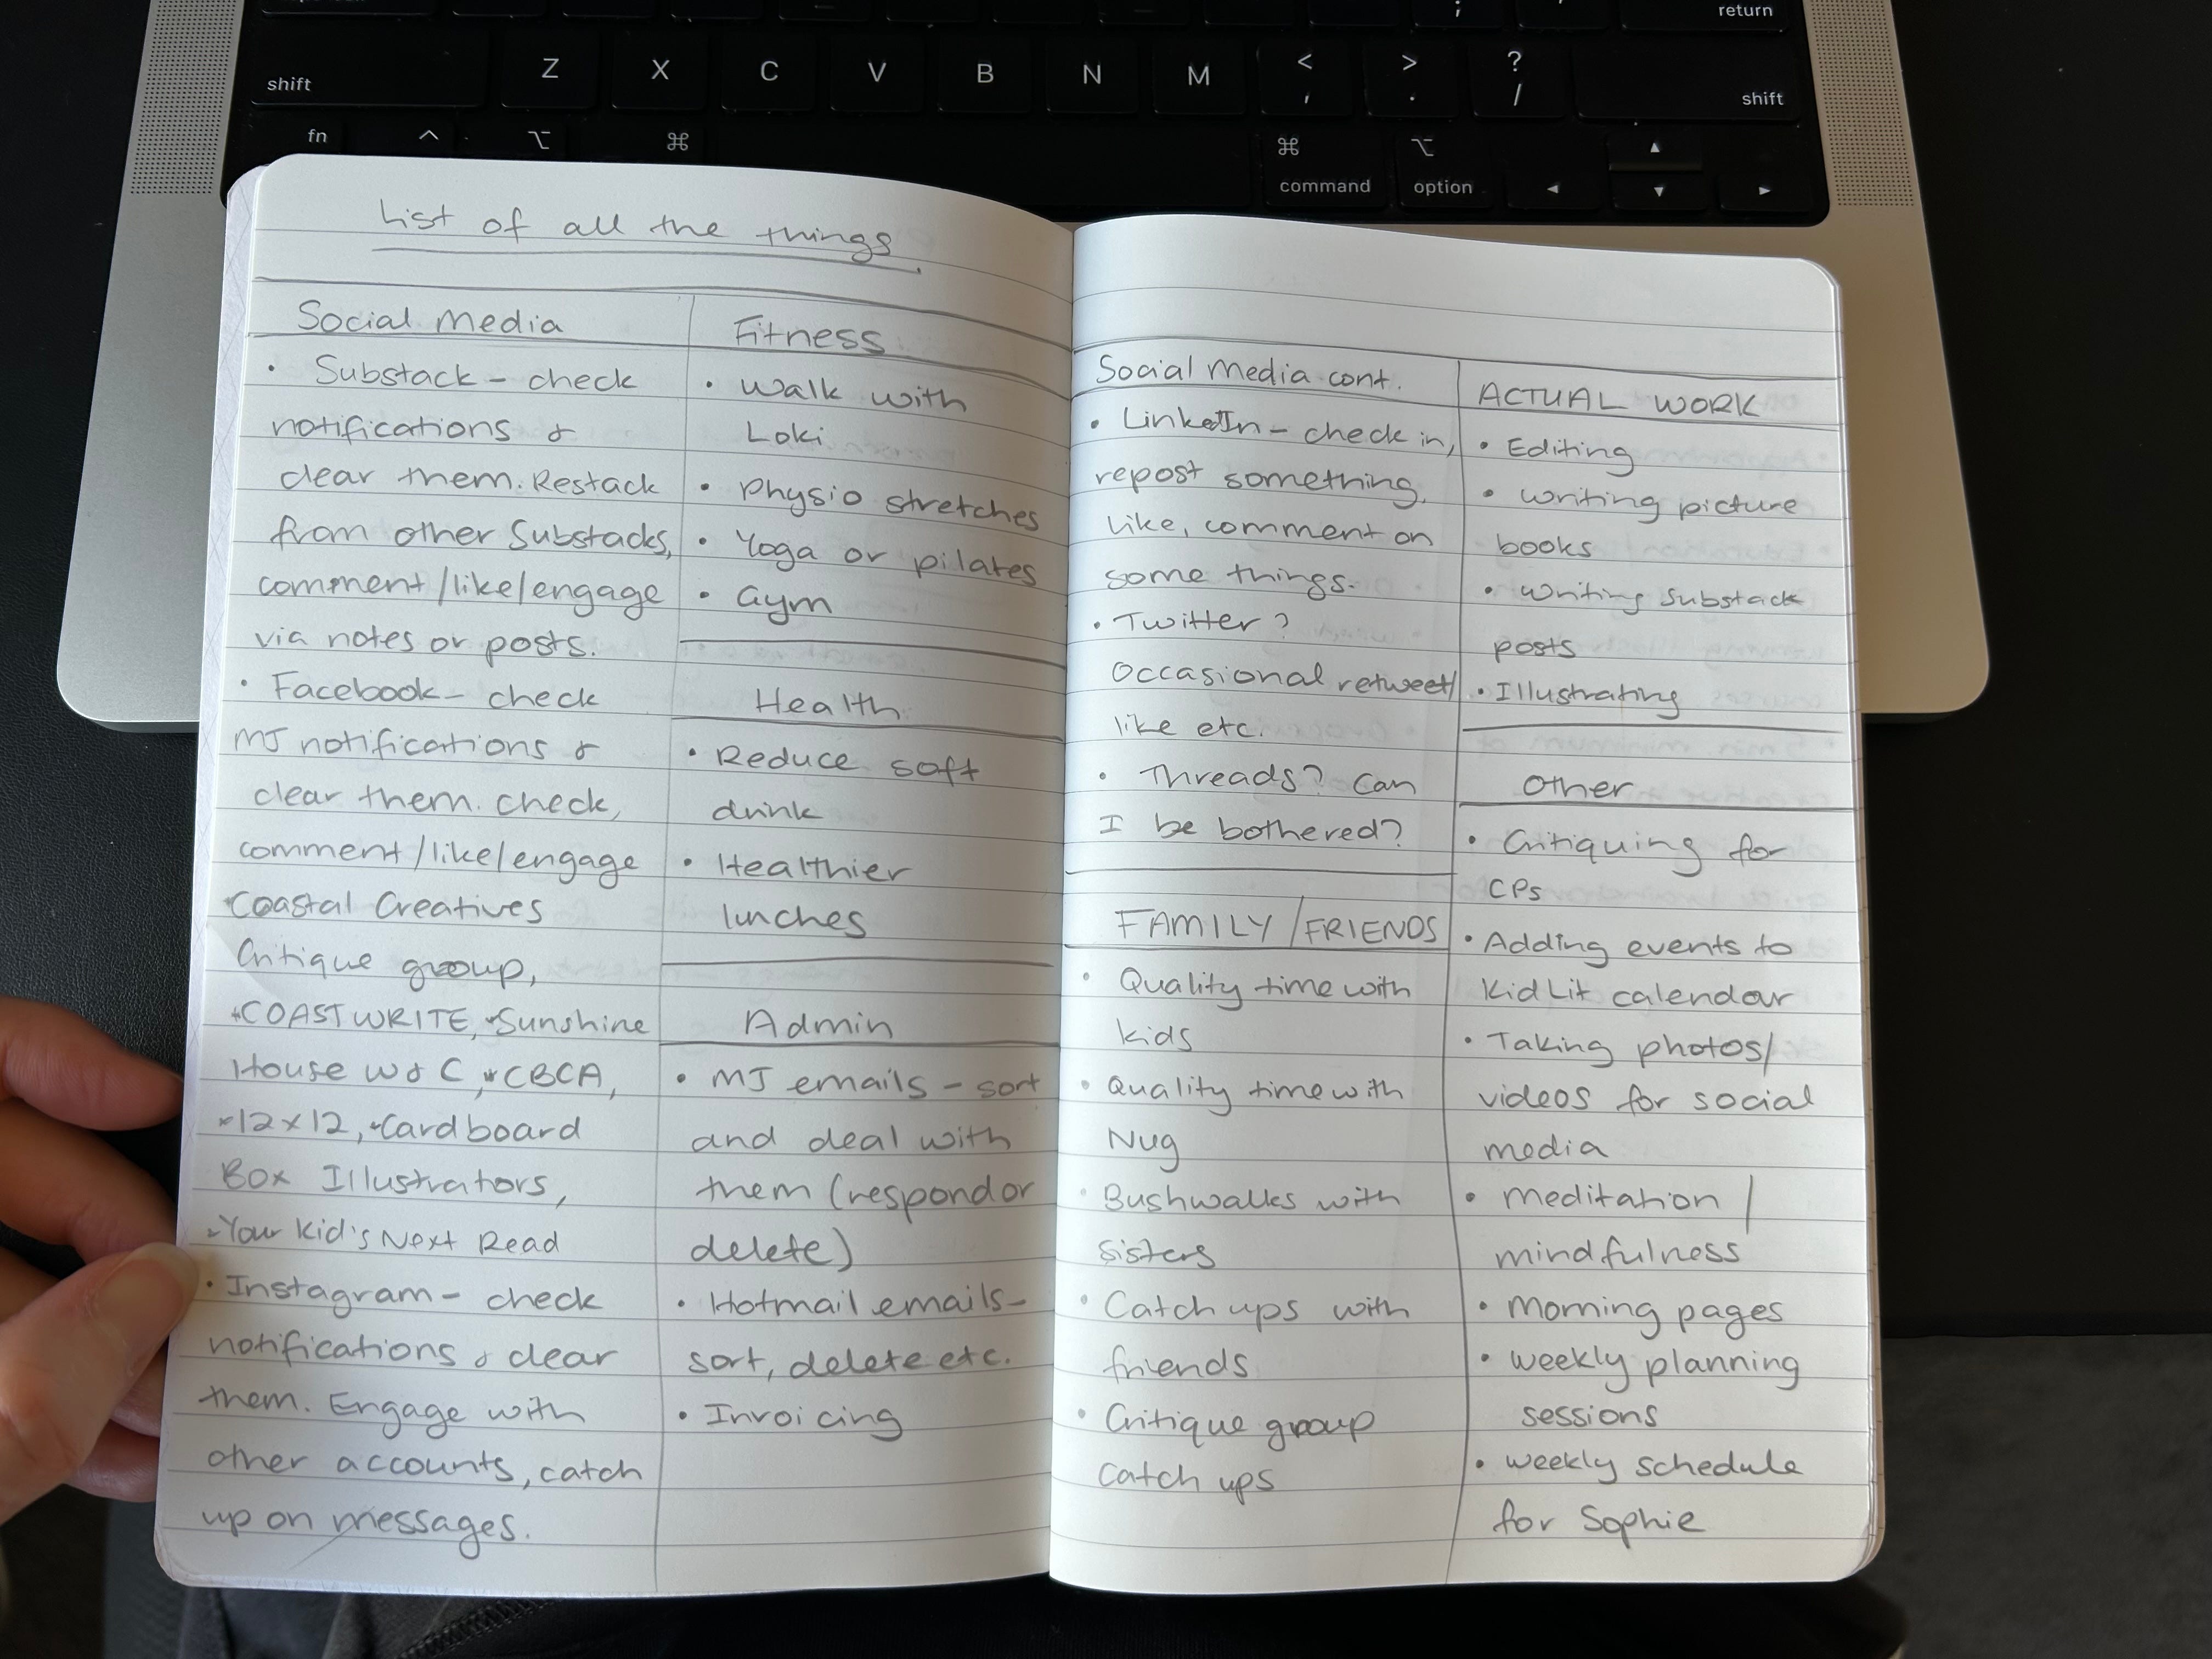 return
shift
Z
X
C
V
B
N
M
<
,
>
.
?
/
shift
fn
⌘
command
option
List of all the things
Social Media
• Substack - check
notifications &
clear them. Restack
from other Substacks,
comment/like/engage
via notes or posts.
• Facebook - check
MJ notifications &
clear them. check,
comment/like/engage
Coastal Creatives
Critique group,
COASTWRITE, Sunshine
House W & C, CBCA,
12x12, Cardboard
Box Illustrators,
Your Kid's Next Read
• Instagram - check
notifications & clear
them. Engage with
other accounts, catch
up on messages.
Fitness
• Walk with
Loki
• Physio stretches
• Yoga or pilates
• Gym
Health
• Reduce soft
drink
• Healthier
lunches
Admin
• MJ emails - sort
and deal with
them (respond or
delete)
• Hotmail emails -
sort, delete etc.
• Invoicing
Social Media cont.
• LinkedIn - check in,
repost something,
like, comment on
some things.
• Twitter?
Occasional retweet/
like etc.
• Threads? Can
I be bothered?
FAMILY/FRIENDS
• Quality time with
kids
• Quality time with
Nug
• Bushwalks with
sisters
• Catch ups with
friends
• Critique group
catch ups
ACTUAL WORK
• Editing
• Writing picture
books
• Writing Substack
posts
• Illustrating
Other
• Critiquing for
CPs
• Adding events to
KidLit calendar
• Taking photos/
videos for social
media
• Meditation/
mindfulness
• Morning pages
• Weekly planning
sessions
• Weekly schedule
for Sophie